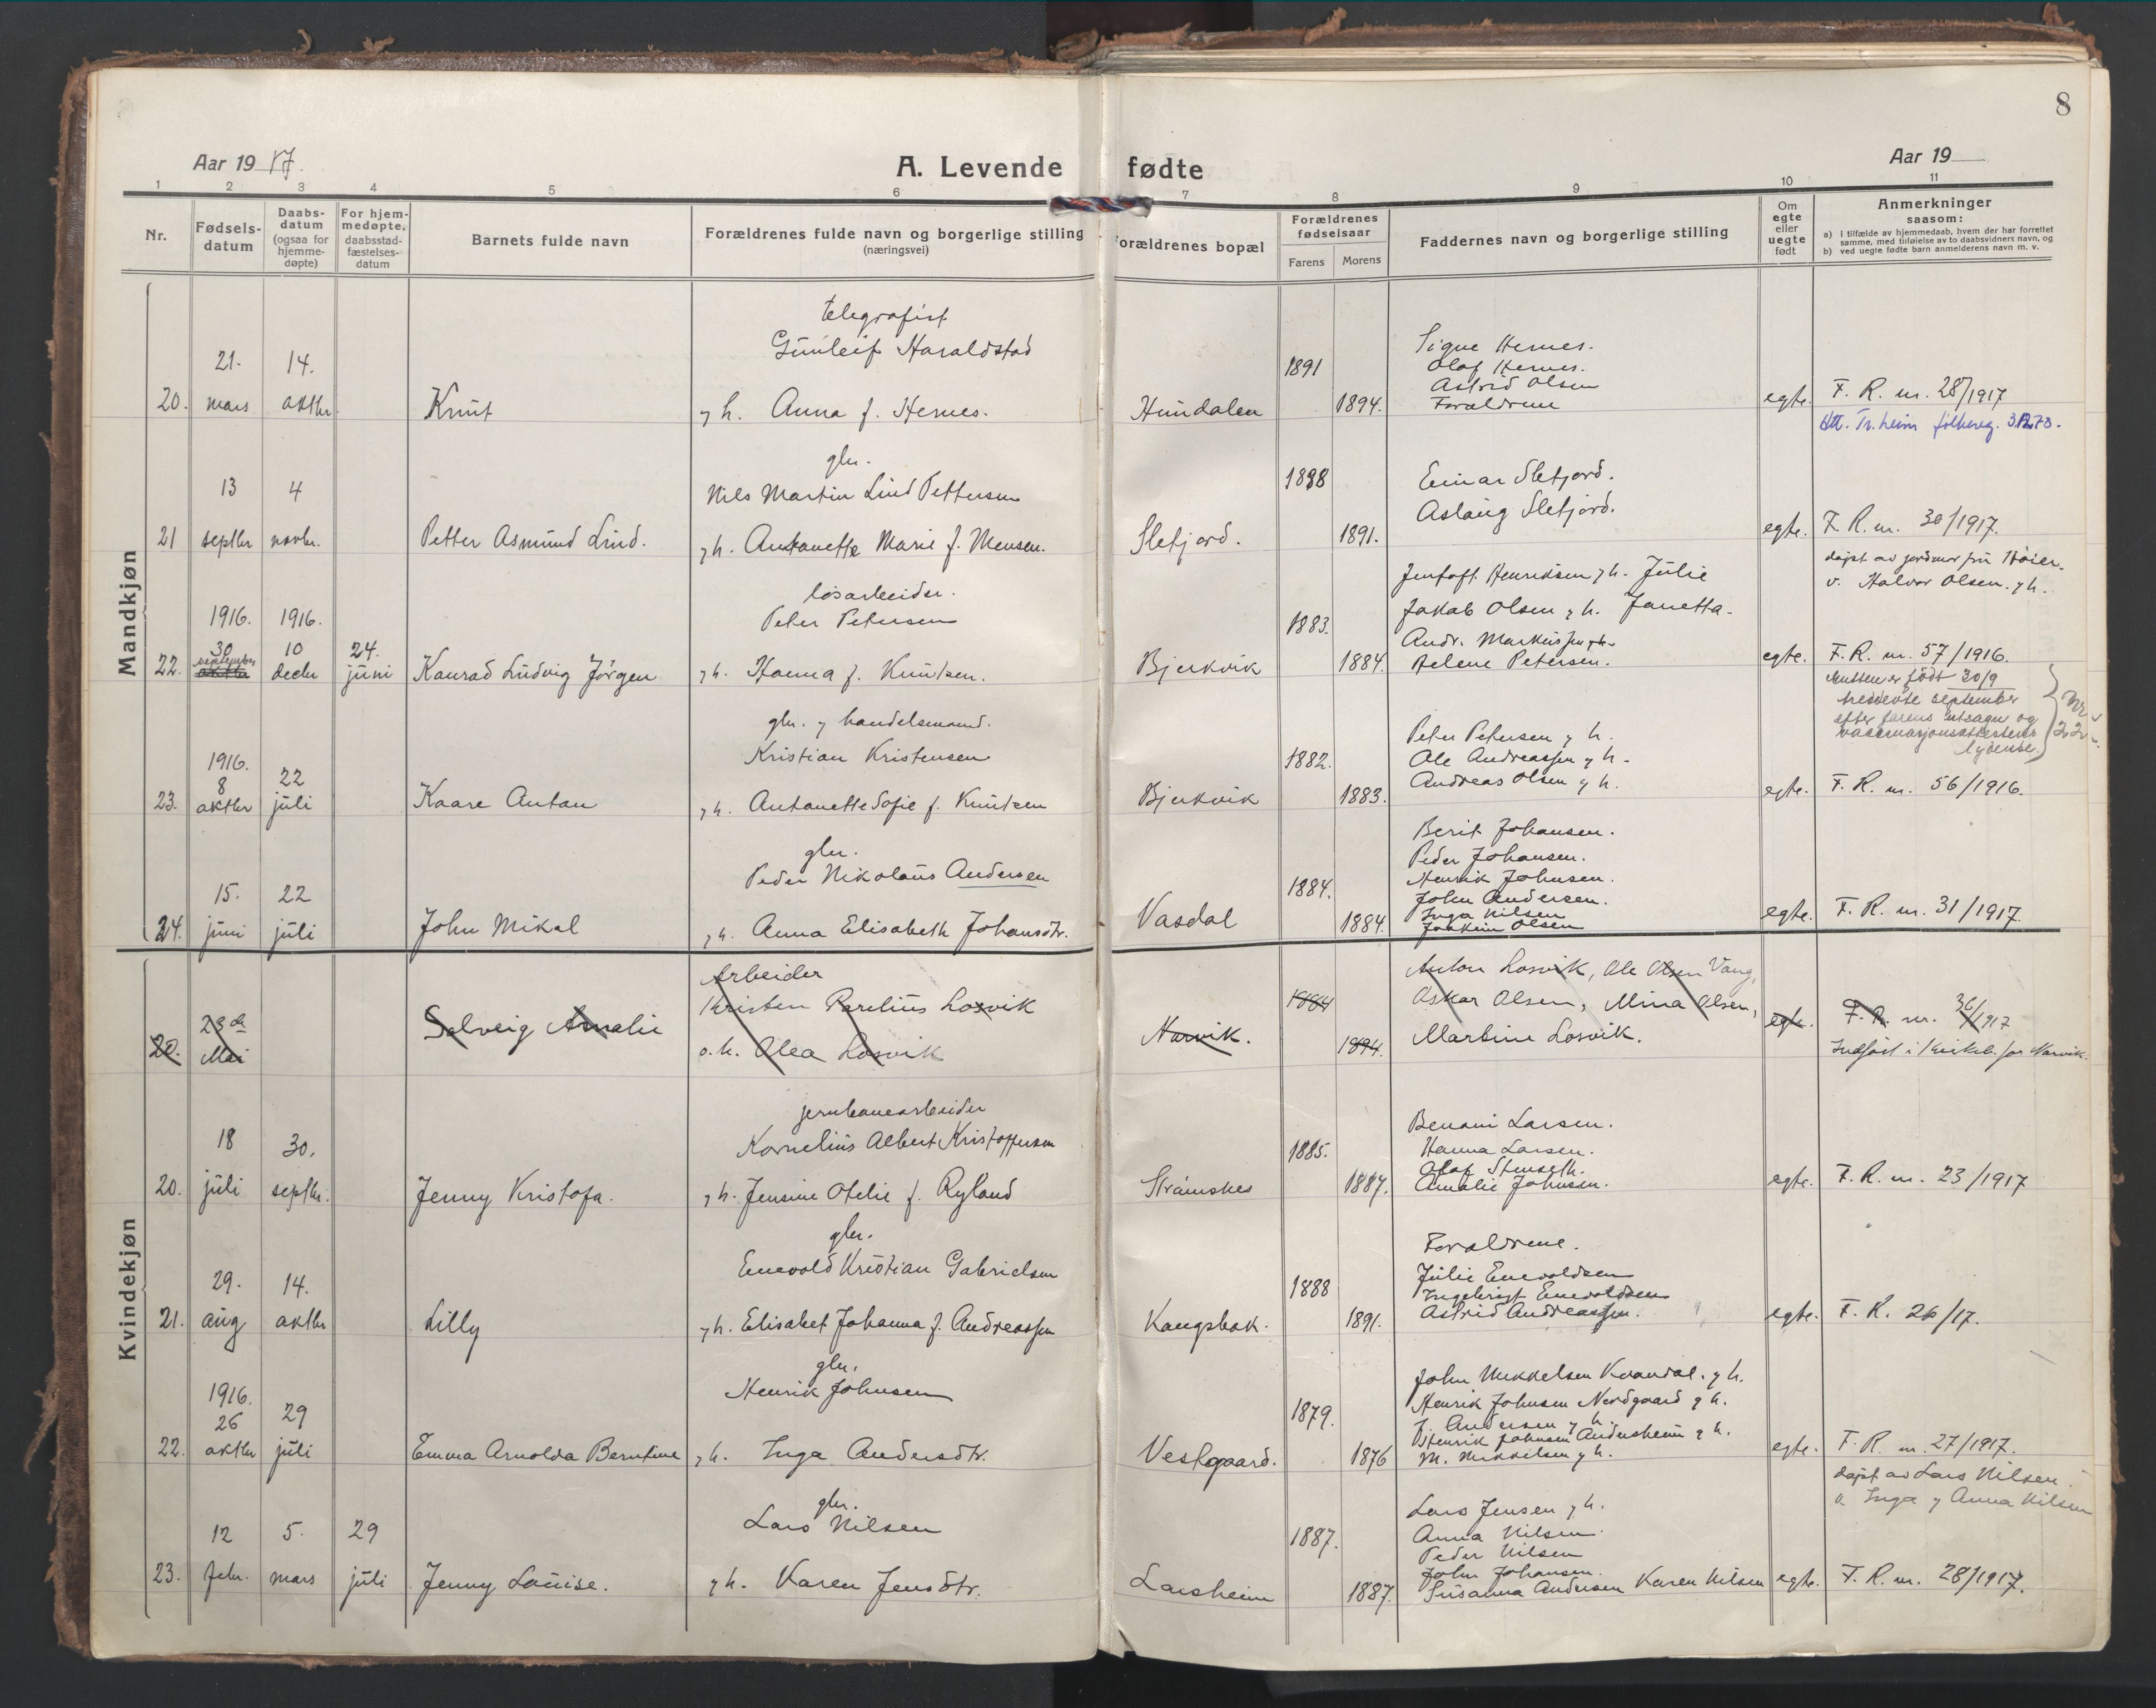 8
Aar 19 17.
A. Levende fødte
Aar 19
1 2 3 4 5 6 7 8 9 10 11
Nr.
Fødsels-
datum
Daabs-
datum
(ogsaa for
hjemme-
døpte)
For hjem-
medøpte,
daabsstad-
fæstelses-
datum
Barnets fulde navn
Forældrenes fulde navn og borgerlige stilling
(næringsvei)
Forældrenes bopæl
Forældrenes
fødselsaar
Farens Morens
Faddernes navn og borgerlige stilling
Om
egte
eller
uegte
født
Anmerkninger
saasom:
a) i tilfælde av hjemmedaab, hvem der har forrettet
samme, med tilføielse av to daabsvidners navn, og
b) ved uegte fødte barn anmelderens navn m. v.
Mandkjøn
telegrafist
Gunleif Haraldstad
21. 14.
20. mars oktbr. Knut
y h. Anna f. Hernes.
Hundalen
1891
1894.
Signe Hernes.
Olaf Hernes.
Astrid Olsen
Forældrene
egte. F. R. nr. 28/1917
Att. Tr.heim folkereg.
glr.
13 4
Nils Martin Lind Pettersen
21 septbr novbr. Petter Asmund Lind.
y h. Antonette Marie f. Mensen.
Sletjord.
1888
1891.
Einar Sletjord.
Aslaug Sletjord.
egte. F. R. nr. 30/1917.
løsarbeider.
Peter Petersen
1916. 1916.
30 10 24.
september
22. oktbr decbr juni Konrad Ludvig Jørgen
y h. Hanna f. Knutsen.
Bjerkvik
1883.
1884.
Jentoft Henriksen y h. Julie
Jakob Olsen y h. Janetta.
Andr. Markussen y h.
Helene Petersen.
egte.
døpt av jordmor fru Høier.
v. Halvor Olsen. y h.
F. R. nr. 57/1916.
Gutten er født 30/9
treddevte september
efter farens utsagn og
vaksinasjonsattestens
lydende.
Nr
22
glr. y handelsmand.
Kristian Kristensen
1916.
8 22
23. oktbr juli Kaare Antan
y h. Antonette Sofie f. Knutsen
Bjerkvik
1882.
1883.
Peter Petersen y h.
Ole Andreassen y h.
Andreas Olsen y h.
egte. F. R. nr. 56/1916.
glr.
Peder Nikolaus Andersen
15. 22
24. juni juli John Mikal
y h. Anna Elisabeth Johansdtr.
Vasdal
1884.
1884.
Berit Johansen.
Peder Johansen.
Henrik Johnsen.
John Andersen.
Inga Nilsen
Joakim Olsen
egte. F. R. nr. 31/1917.
Kvindekjøn
Arbeider
Kristen Parelius Losvik
23de
20. Mai Solveig Amalie
o. h. Olea Losvik
Narvik.
1884
1894.
Anton Losvik, Ole Olsen Vang,
Oskar Olsen, Mina Olsen,
Martine Losvik.
egte. F. R. nr. 36/1917
Indført i kirkeb. for Narvik.
jernbanearbeider
Kornelius Albert Kristoffersen
18 30.
20. juli septbr. Jenny Kristofa.
y h. Jensine Otelie f. Ryland
Straumsnes
1885.
1887.
Benoni Larsen.
Hanna Larsen.
Olaf Stenseth.
Amalie Johnsen.
egte. F. R. nr. 23/1917
glr.
Enevold Kristian Gabrielsen
29. 14.
21. aug oktbr Lilly
y h. Elisabet Johanna f. Andreassen
Kangsbak.
1888
1891.
Forældrene.
Julie Enevoldsen
Ingebrigt Enevoldsen
Astrid Andreassen.
egte. F. R. 26/17.
glr.
Henrik Johnsen
1916.
26 29
22. oktbr juli Emma Arnolda Berntine
y h. Inga Andersdtr.
Vestgaard.
1879.
1876
John Mikkelsen Kvandal. y h.
Henrik Johnsen Nordgaard y h.
J. Andersen y h.
Henrik Johnsen Andersheim y h.
M. Mikkelsen y h.
egte. F. R. nr. 27/1917.
glr.
Lars Nilsen
12 5. 29
23. febr. mars juli Jenny Louise.
y h. Karen Jensdtr.
Larsheim
1887.
1887.
Lars Jensen y h.
Anna Nilsen.
Peder Nilsen
John Johansen.
Susanna Andersen Karen Nilsen
egte.
døpt av Lars Nilsen
v. Inga y Anna Nilsen
F. R. nr. 28/1917.